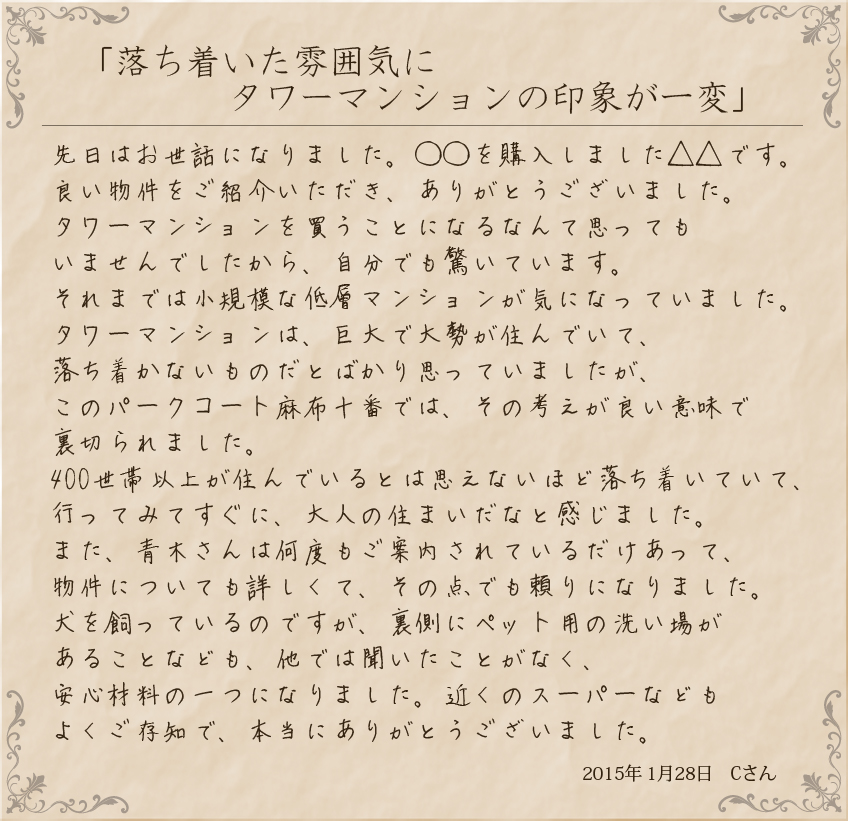 「落ち着いた雰囲気に
タワーマンションの印象が一変」
先日はお世話になりました。〇〇を購入しました△△です。
良い物件をご紹介いただき、ありがとうございました。
タワーマンションを買うことになるなんて思っても
いませんでしたから、自分でも驚いています。
それまでは小規模な低層マンションが気になっていました。
タワーマンションは、巨大で大勢が住んでいて、
落ち着かないものだとばかり思っていましたが、
このパークコート麻布十番では、その考えが良い意味で
裏切られました。
400世帯以上が住んでいるとは思えないほど落ち着いていて、
行ってみてすぐに、大人の住まいだなと感じました。
また、青木さんは何度もご案内されているだけあって、
物件についても詳しくて、その点でも頼りになりました。
犬を飼っているのですが、裏側にペット用の洗い場が
あることなども、他では聞いたことがなく、
安心材料の一つになりました。近くのスーパーなども
よくご存知で、本当にありがとうございました。
2015年 1月28日　Cさん